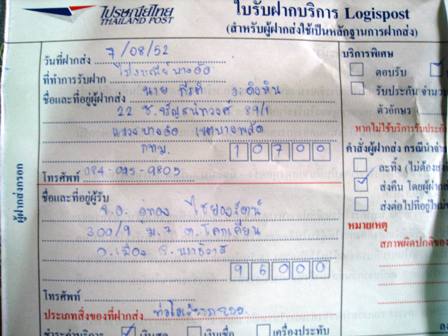 ไปรษณีย์ไทย
THAILAND POST
ใบรับฝากบริการ Logispost
(สำหรับผู้ฝากส่งใช้เป็นหลักฐานการฝากส่ง)
วันที่ฝากส่ง 7/08/52
ที่ทำการรับฝาก
ชื่อและที่อยู่ผู้ฝากส่ง นาย
22 ซ.จรัญสนิทวงศ์ 89/1
แขวงบางอ้อ เขตบางพลัด
กทม. 10700
โทรศัพท์ 084-095-9805
ผู้ฝากกรอก
ชื่อและที่อยู่ผู้รับ
300/9 ม.7 ต.โคกเคียน
อ.เมือง จ.นราธิวาส
96000
โทรศัพท์
ประเภทสิ่งของที่ฝากส่ง
ชำระค่าบริการ เงินสด เงินเชื่อ เครื่องประทับ
บริการพิเศษ
ตอบรับ
รับประกัน จำนวน
ตัวอักษร
หากไม่ใช้บริการรับประกัน
คำสั่งผู้ฝากส่ง กรณีนำจ่าย
ละทิ้ง (ไม่ต้องส่ง
ส่งคืน โดยผู้ฝาก
ส่งต่อไปที่อยู่ใหม่
หมายเหตุ
สภาพผิดปกติของ